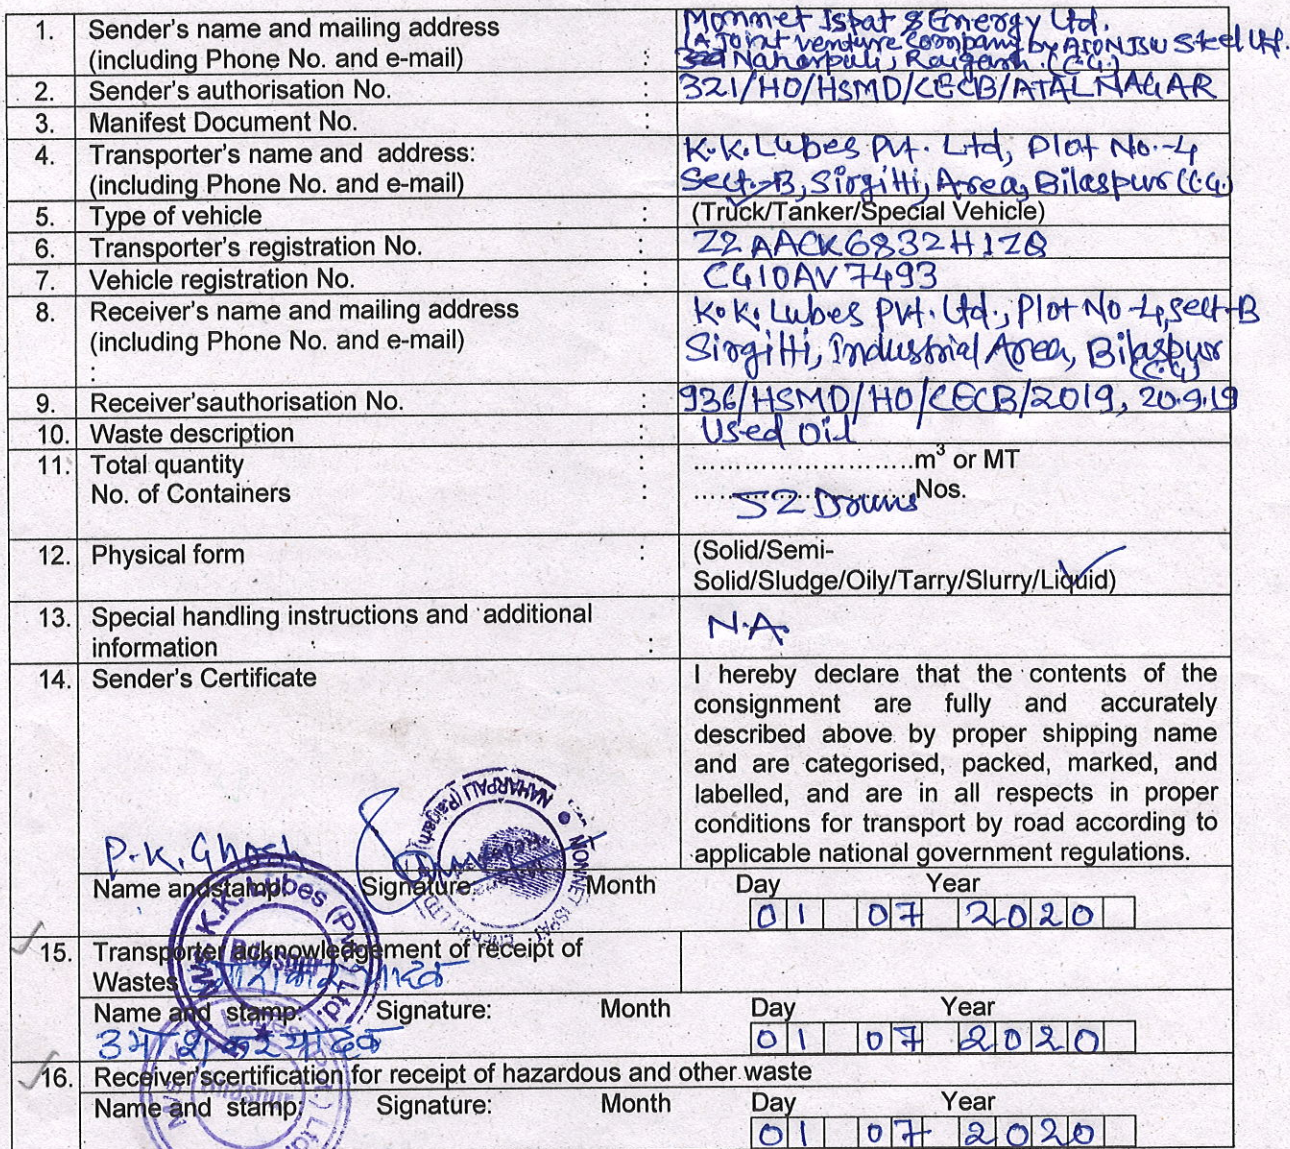 1. Sender's name and mailing address
(including Phone No. and e-mail) :
Monnet Ispat & Energy Ltd.
(A Joint venture Company by AION JSW Steel Ltd.
Naharpali, Raigarh. (C.G.)
2. Sender's authorisation No. : 321/HO/HSMD/CECB/ATALNAGAR
3. Manifest Document No. :
4. Transporter's name and address: :
(including Phone No. and e-mail)
K.K. Lubes Pvt. Ltd, Plot No.-4
Sect.-B, Sirgitti, Area, Bilaspur (C.G.)
5. Type of vehicle : (Truck/Tanker/Special Vehicle)
6. Transporter's registration No. : 22AACK6832H1ZQ
7. Vehicle registration No. : CG10AV7493
8. Receiver's name and mailing address
(including Phone No. and e-mail)
:
K.K. Lubes Pvt. Ltd., Plot No-4, Sect-B
Sirgitti, Industrial Area, Bilaspur
(C.G)
9. Receiver'sauthorisation No. : 936/HSMD/HO/CECB/2019, 20.9.19
10. Waste description : Used Oil
11. Total quantity : ..........................m³ or MT
No. of Containers : ..........................Nos.
52 Drums
12. Physical form : (Solid/Semi-
Solid/Sludge/Oily/Tarry/Slurry/Liquid)
13. Special handling instructions and additional
information : N.A.
14. Sender's Certificate
I hereby declare that the contents of the
consignment are fully and accurately
described above by proper shipping name
and are categorised, packed, marked, and
labelled, and are in all respects in proper
conditions for transport by road according to
applicable national government regulations.
MONNET ISPAT ENERGY LTD. NAHARPALI (Raigarh)
P.K. Ghosh
Name andstamp: Signature: Month Day Year
01 07 2020
M/s K.K. Lubes (Pvt.) Ltd.
Bilaspur
15. Transporter acknowledgement of receipt of
Wastes
Name and stamp: Signature: Month Day Year
उमाशंकर यादव
01 07 2020
16. Receiver'scertification for receipt of hazardous and other waste
Name and stamp: Signature: Month Day Year
01 07 2020